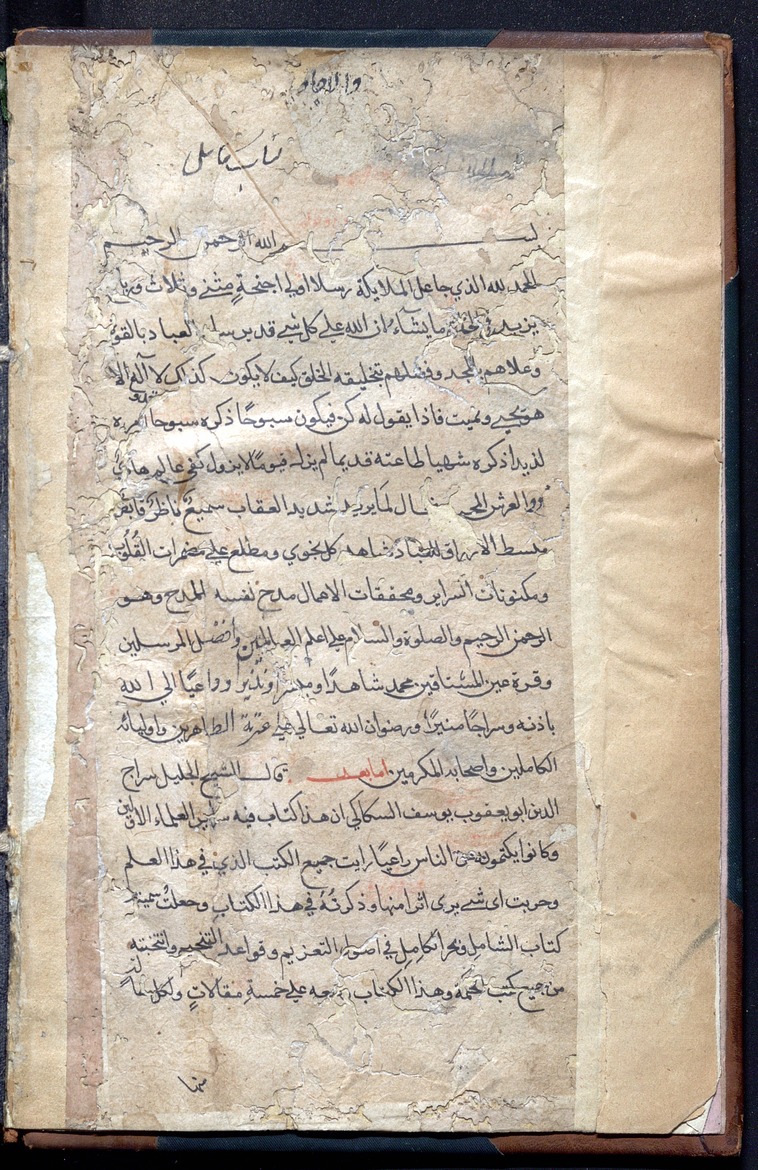 كتاب كامل
بسم الله الرحمن الرحيم
الحمد لله الذي جاعل الملايكة رسلا اولي اجنحةٍ مثنى وثلاث ورباع
يزيد في الخلق ما يشاء ان الله على كل شيء قدير العباد بالقو
وعلاهم بالمجد وفضلهم بتخليقه الخلق كيف لا يكون كذلك لا آله الا
هو يحيي ويميت فاذا يقول له كن فيكون سبوحًا ذكره سبوحا
لذيذا ذكره شهيا طاعته قديما لم يزل قيومًا لا يزول كفى عالم هادي
ذوالعرش المجيد فعال لما يريد شديد العقاب سميعً ناظرً قابض
مبسط الارزاق للعباد شاهد كل نجوي ومطلع على مضمرات القلوب
ومكنونات السراير ومحققات الاعمال مدح لنفسه المدح وهو
الرحمن الرحيم والصلوة والسلام على اعلم العالمين وأفضل المرسلين
وقرة عين المشتاقين محمد شاهدًا ومبشرًا ونذيرًا وداعيًا الي الله
باذنه وسراجًا منيرًا ورضوان الله تعالي على عترته الطاهرين واوليائه
الكاملين واصحابه المكرمين اما بعد قال الشيخ الجليل سراج
الدين ابو يعقوب يوسف السكاكي ان هذا كتاب فيه سراير العلماء الاولين
وكانوا يكتمونه عن الناس رايت جميع الكتب الذي في هذا العلم
وجربت اى شيء يرى اثرا منها وذكرتُهُ في هذا الكتاب وجعلتُ سميته
كتاب الشامل وبحر الكامل في اصول التعزيم وقواعد التنجيم وانتخبته
من جميع كتب الحكمة وهذا الكتاب على خمسة مقالاتٍ ولكل